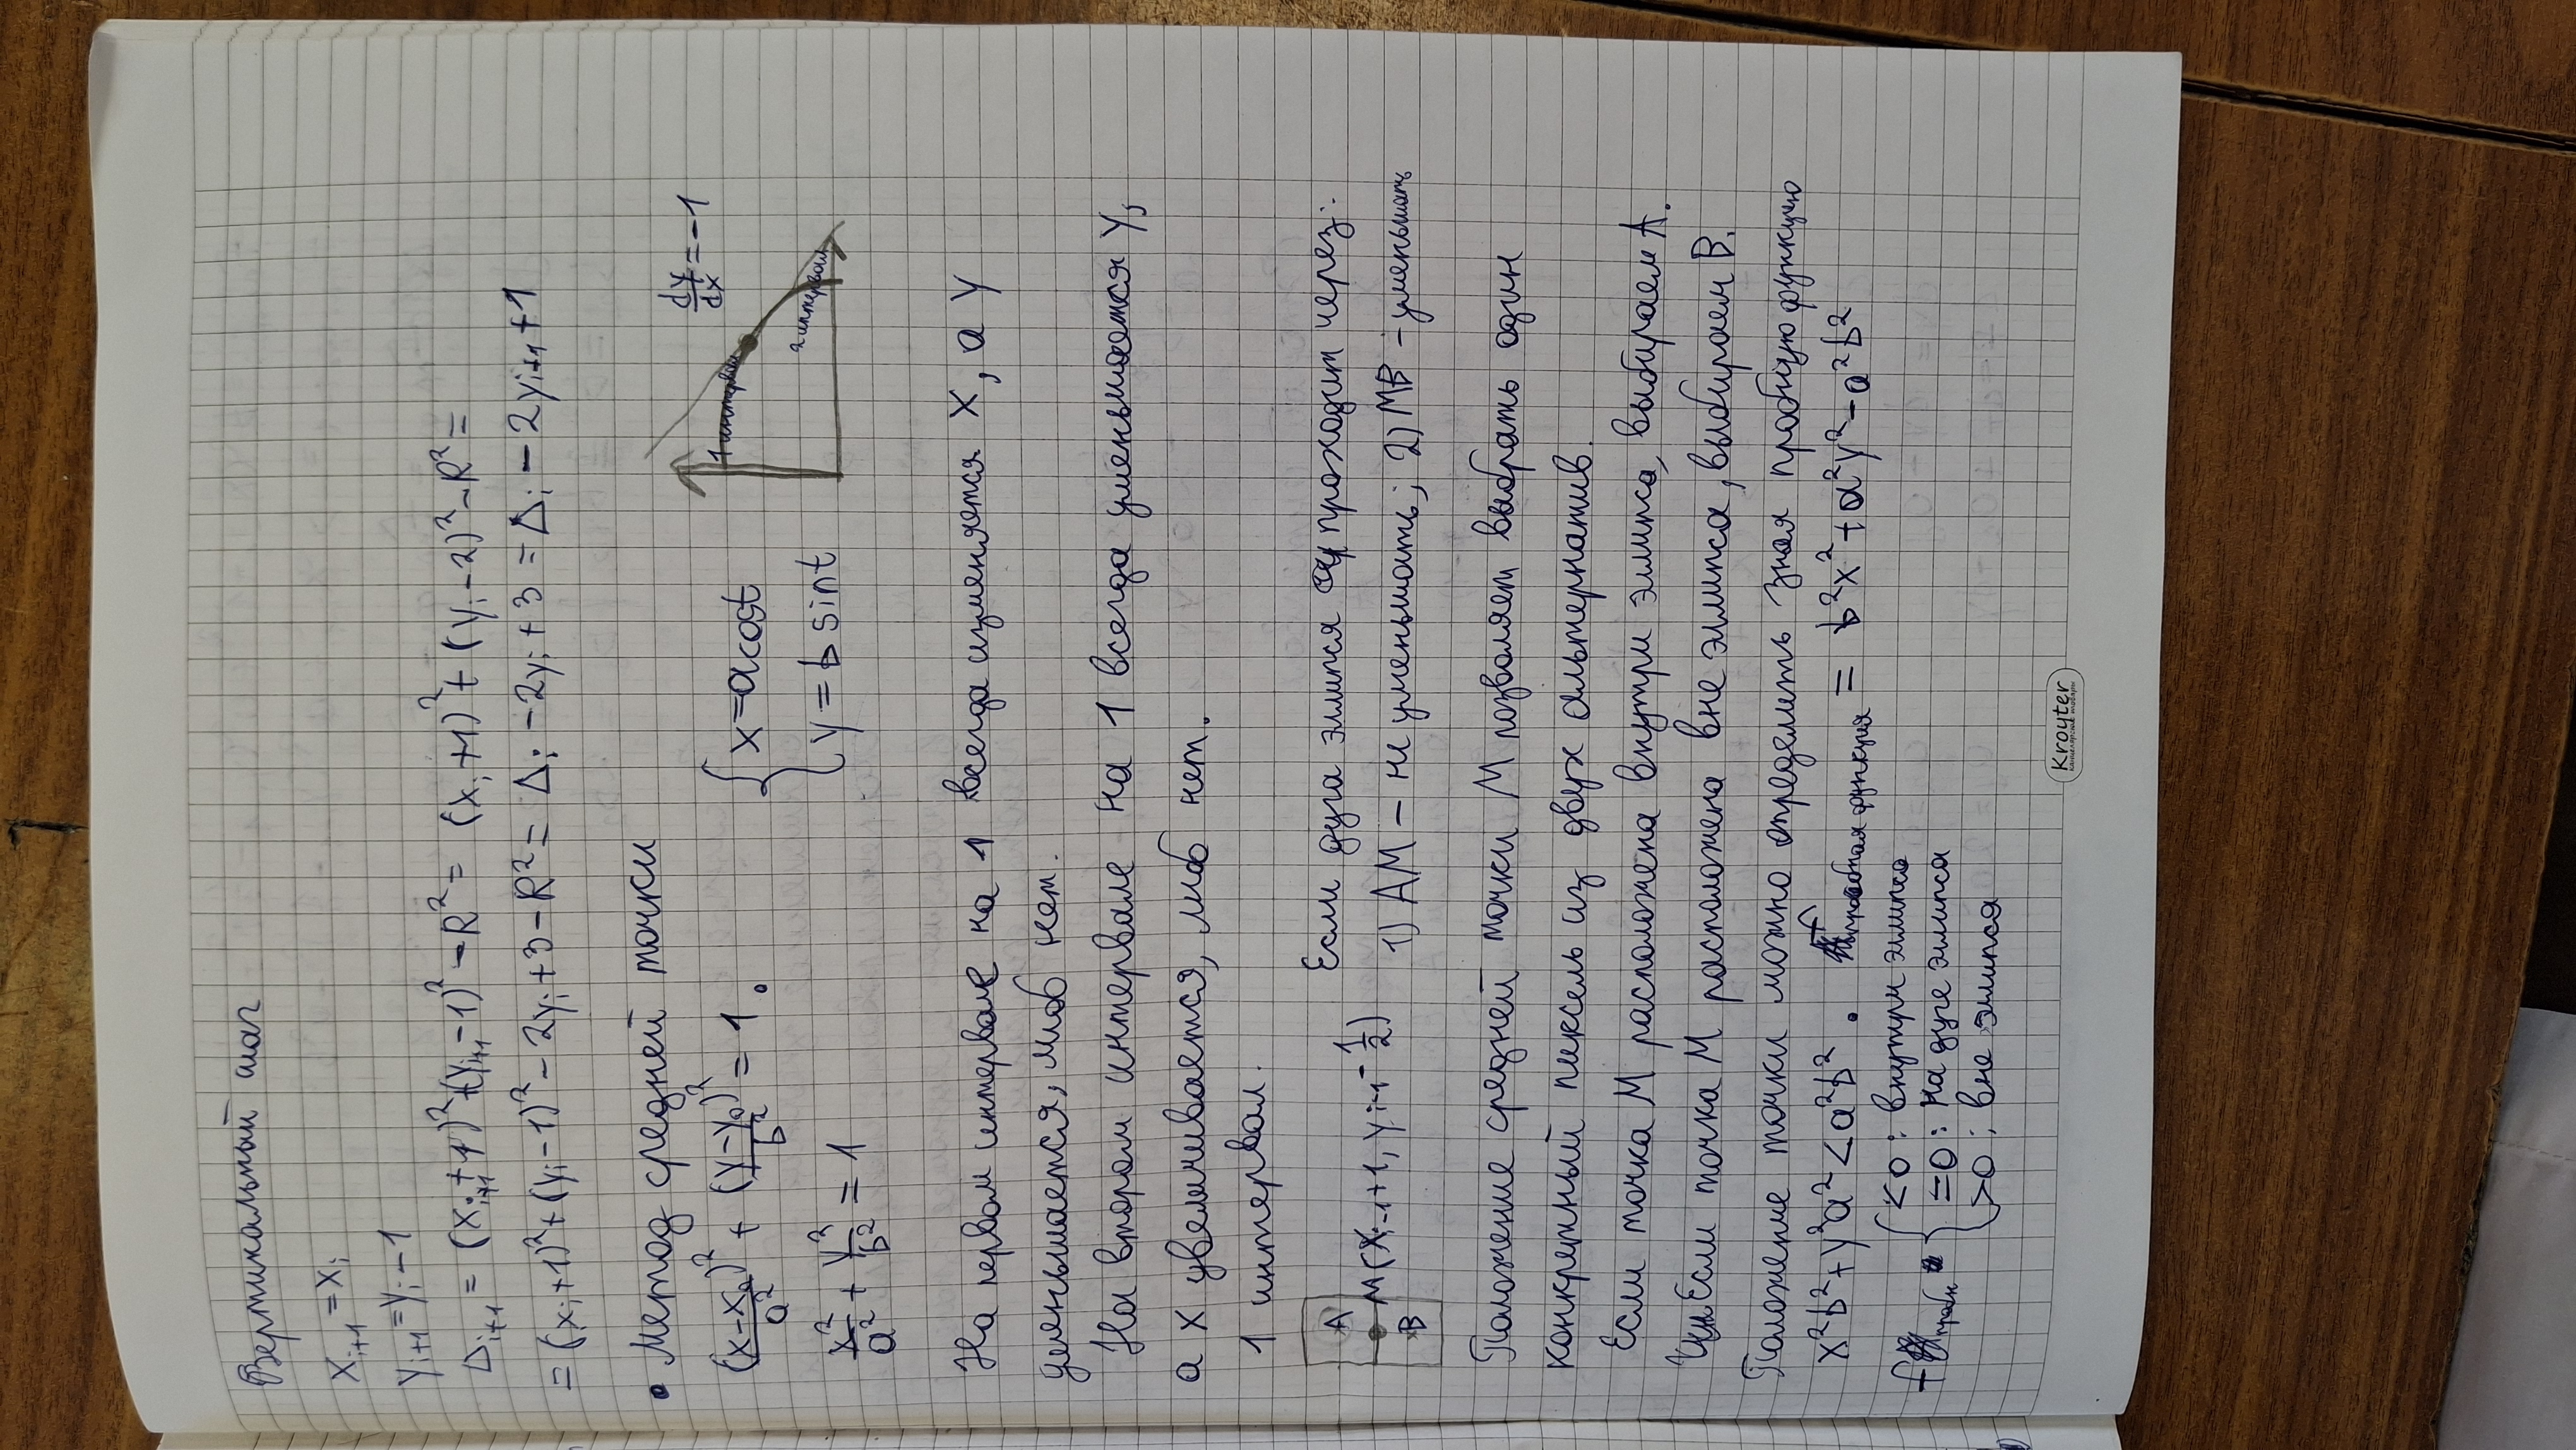 Вертикальный шаг
x_{i+1} = x_i
y_{i+1} = y_i - 1
Δ_{i+1} = (x_{i+1} + 1)² + (y_{i+1} - 1)² - R² = (x_i + 1)² + (y_i - 2)² - R² =
= (x_i + 1)² + (y_i - 1)² - 2y_i + 3 - R² = Δ_i - 2y_i + 3 = Δ_i - 2y_{i+1} + 1
• Метод средней точки
(x-x₀)²/a² + (y-y₀)²/b² = 1.
{ x = a cost
y = b sint
1 интервал
2 интервал
dy/dx = -1
x²/a² + y²/b² = 1
На первом интервале на 1 всегда изменяется x, а y
уменьшается, либо нет.
На втором интервале на 1 всегда уменьшается y,
а x увеличивается, либо нет.
1 интервал.
A
M(x_{i-1}+1, y_{i-1} - 1/2)
B
Если дуга эллипса проходит через:
1) AM – не уменьшать; 2) MB – уменьшать
Положение средней точки M позволяет выбрать один
конкретный пиксель из двух альтернатив.
Если точка M расположена внутри эллипса, выбираем A.
Если точка M расположена вне эллипса, выбираем B.
Положение точки можно определить зная пробную функцию
x²b² + y²a² < a²b². f_{пробная функция} = b²x² + a²y² - a²b²
f_{пробн} { <0 : внутри эллипса
=0 : на дуге эллипса
>0 : вне эллипса
Kroyter
канцелярские товары